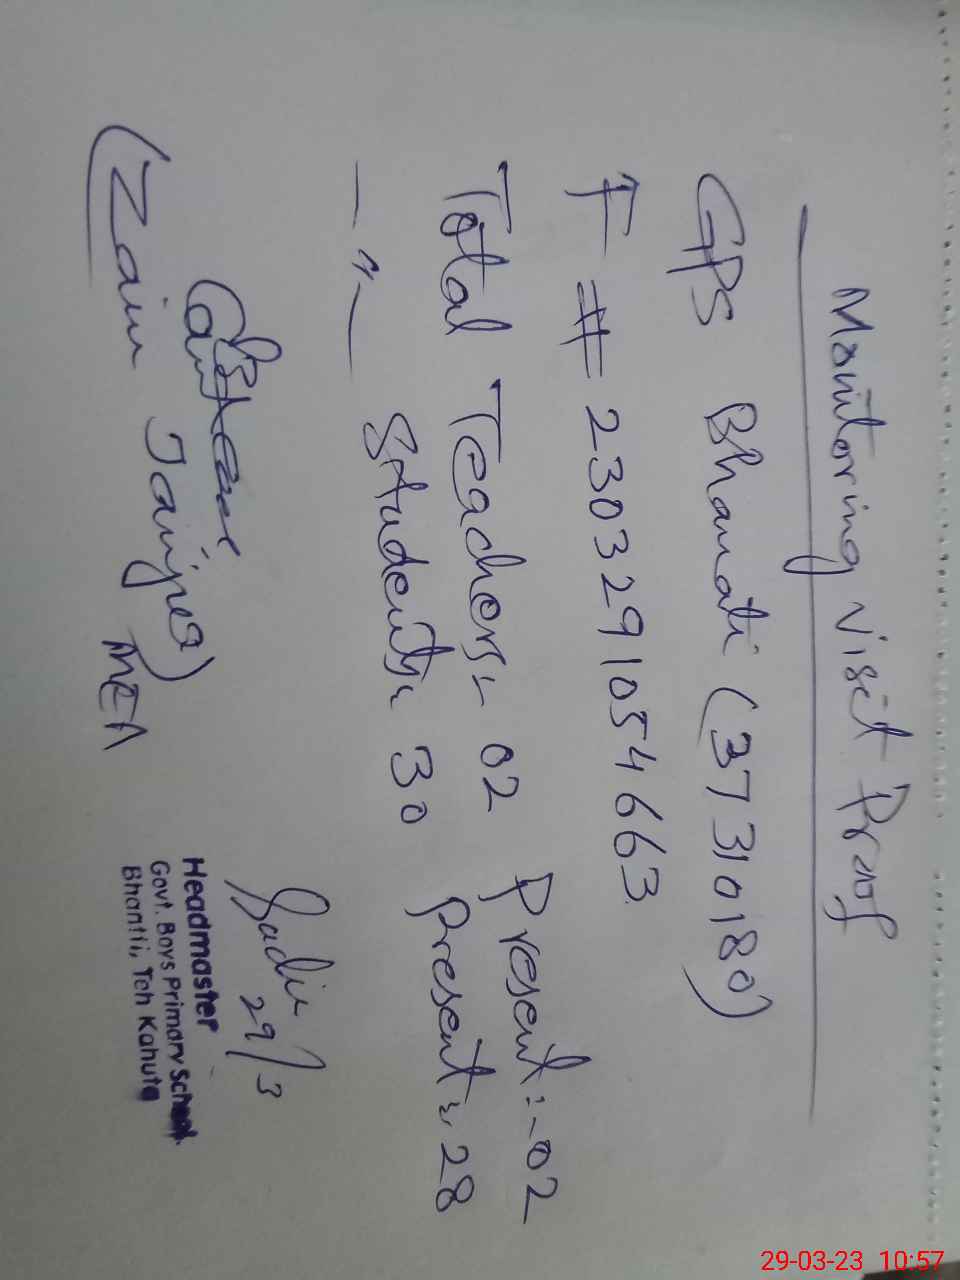 Monitoring Visit Proof
GPS Bhamati (37310180)
F # 2303291054663
Total Teachers:- 02 Present:-02
— " — Students:- 30 Present:- 28
29/3
(Zain
MEA
Headmaster
Govt. Boys Primary School
Bhantti, Teh Kahuta
29-03-23 10:57